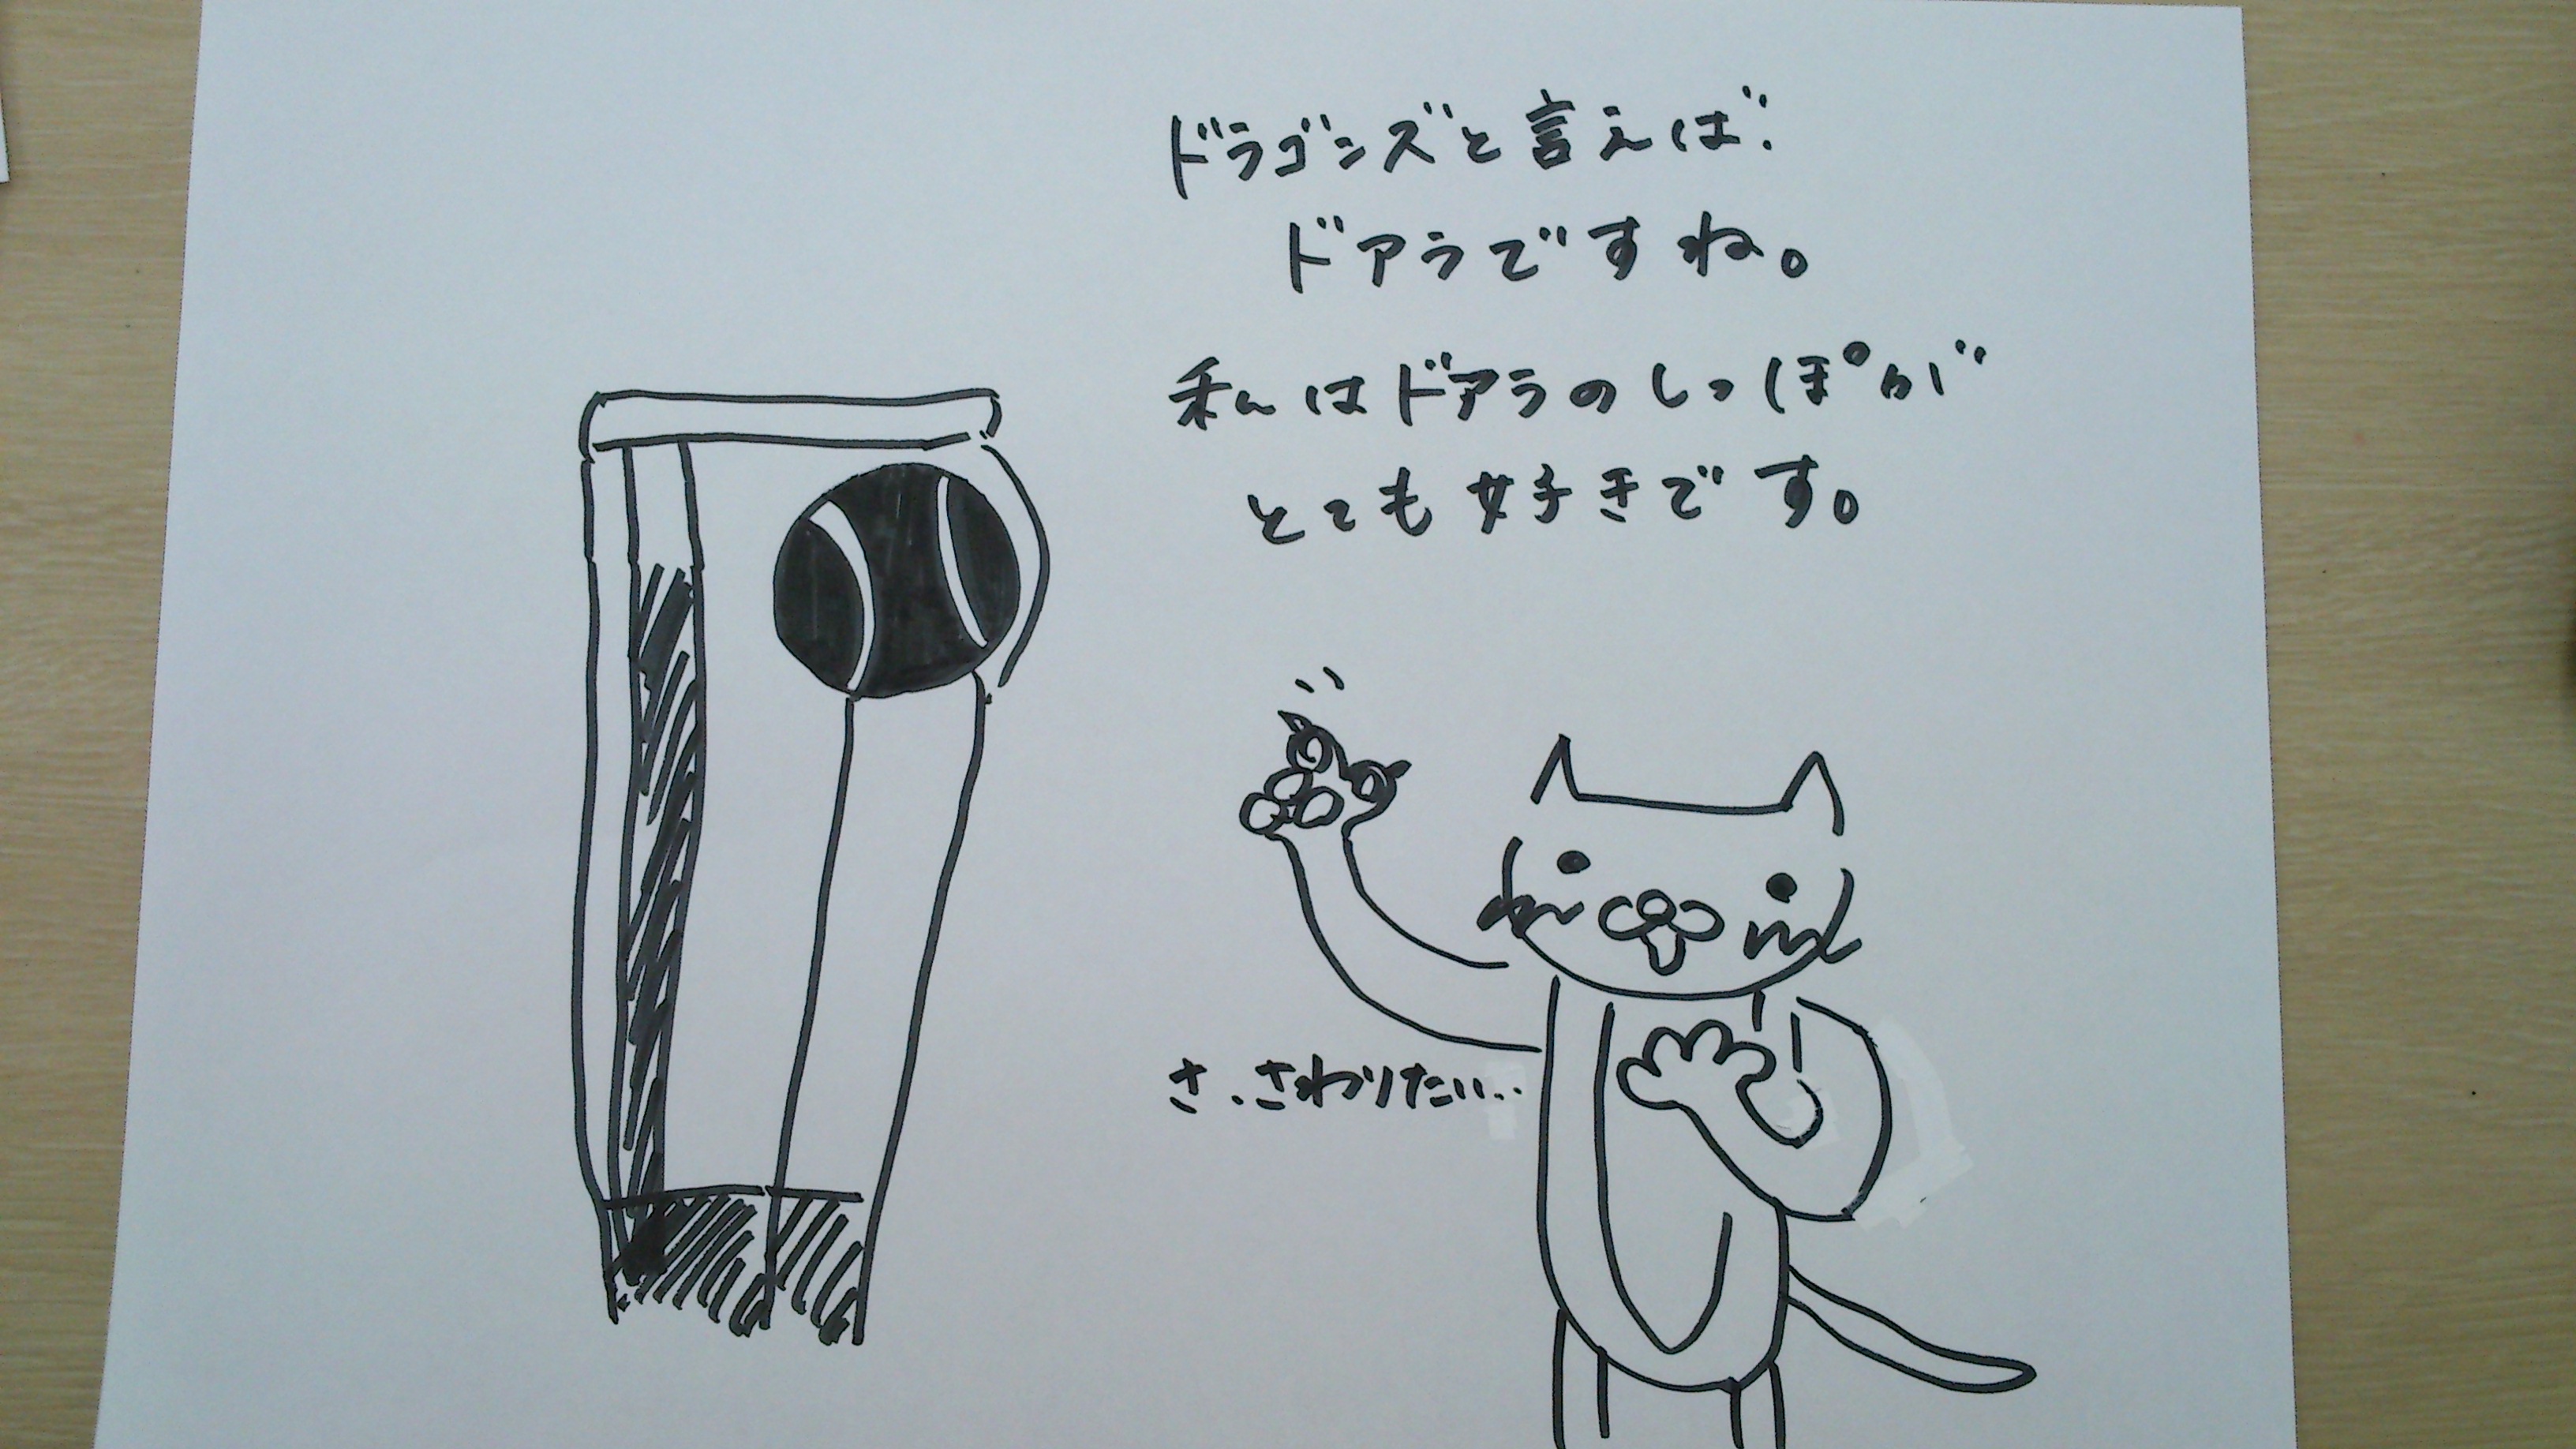 ドラゴンズと言えば、
ドアラですね。
私はドアラのしっぽが
とても好きです。
さ、さわりたい…